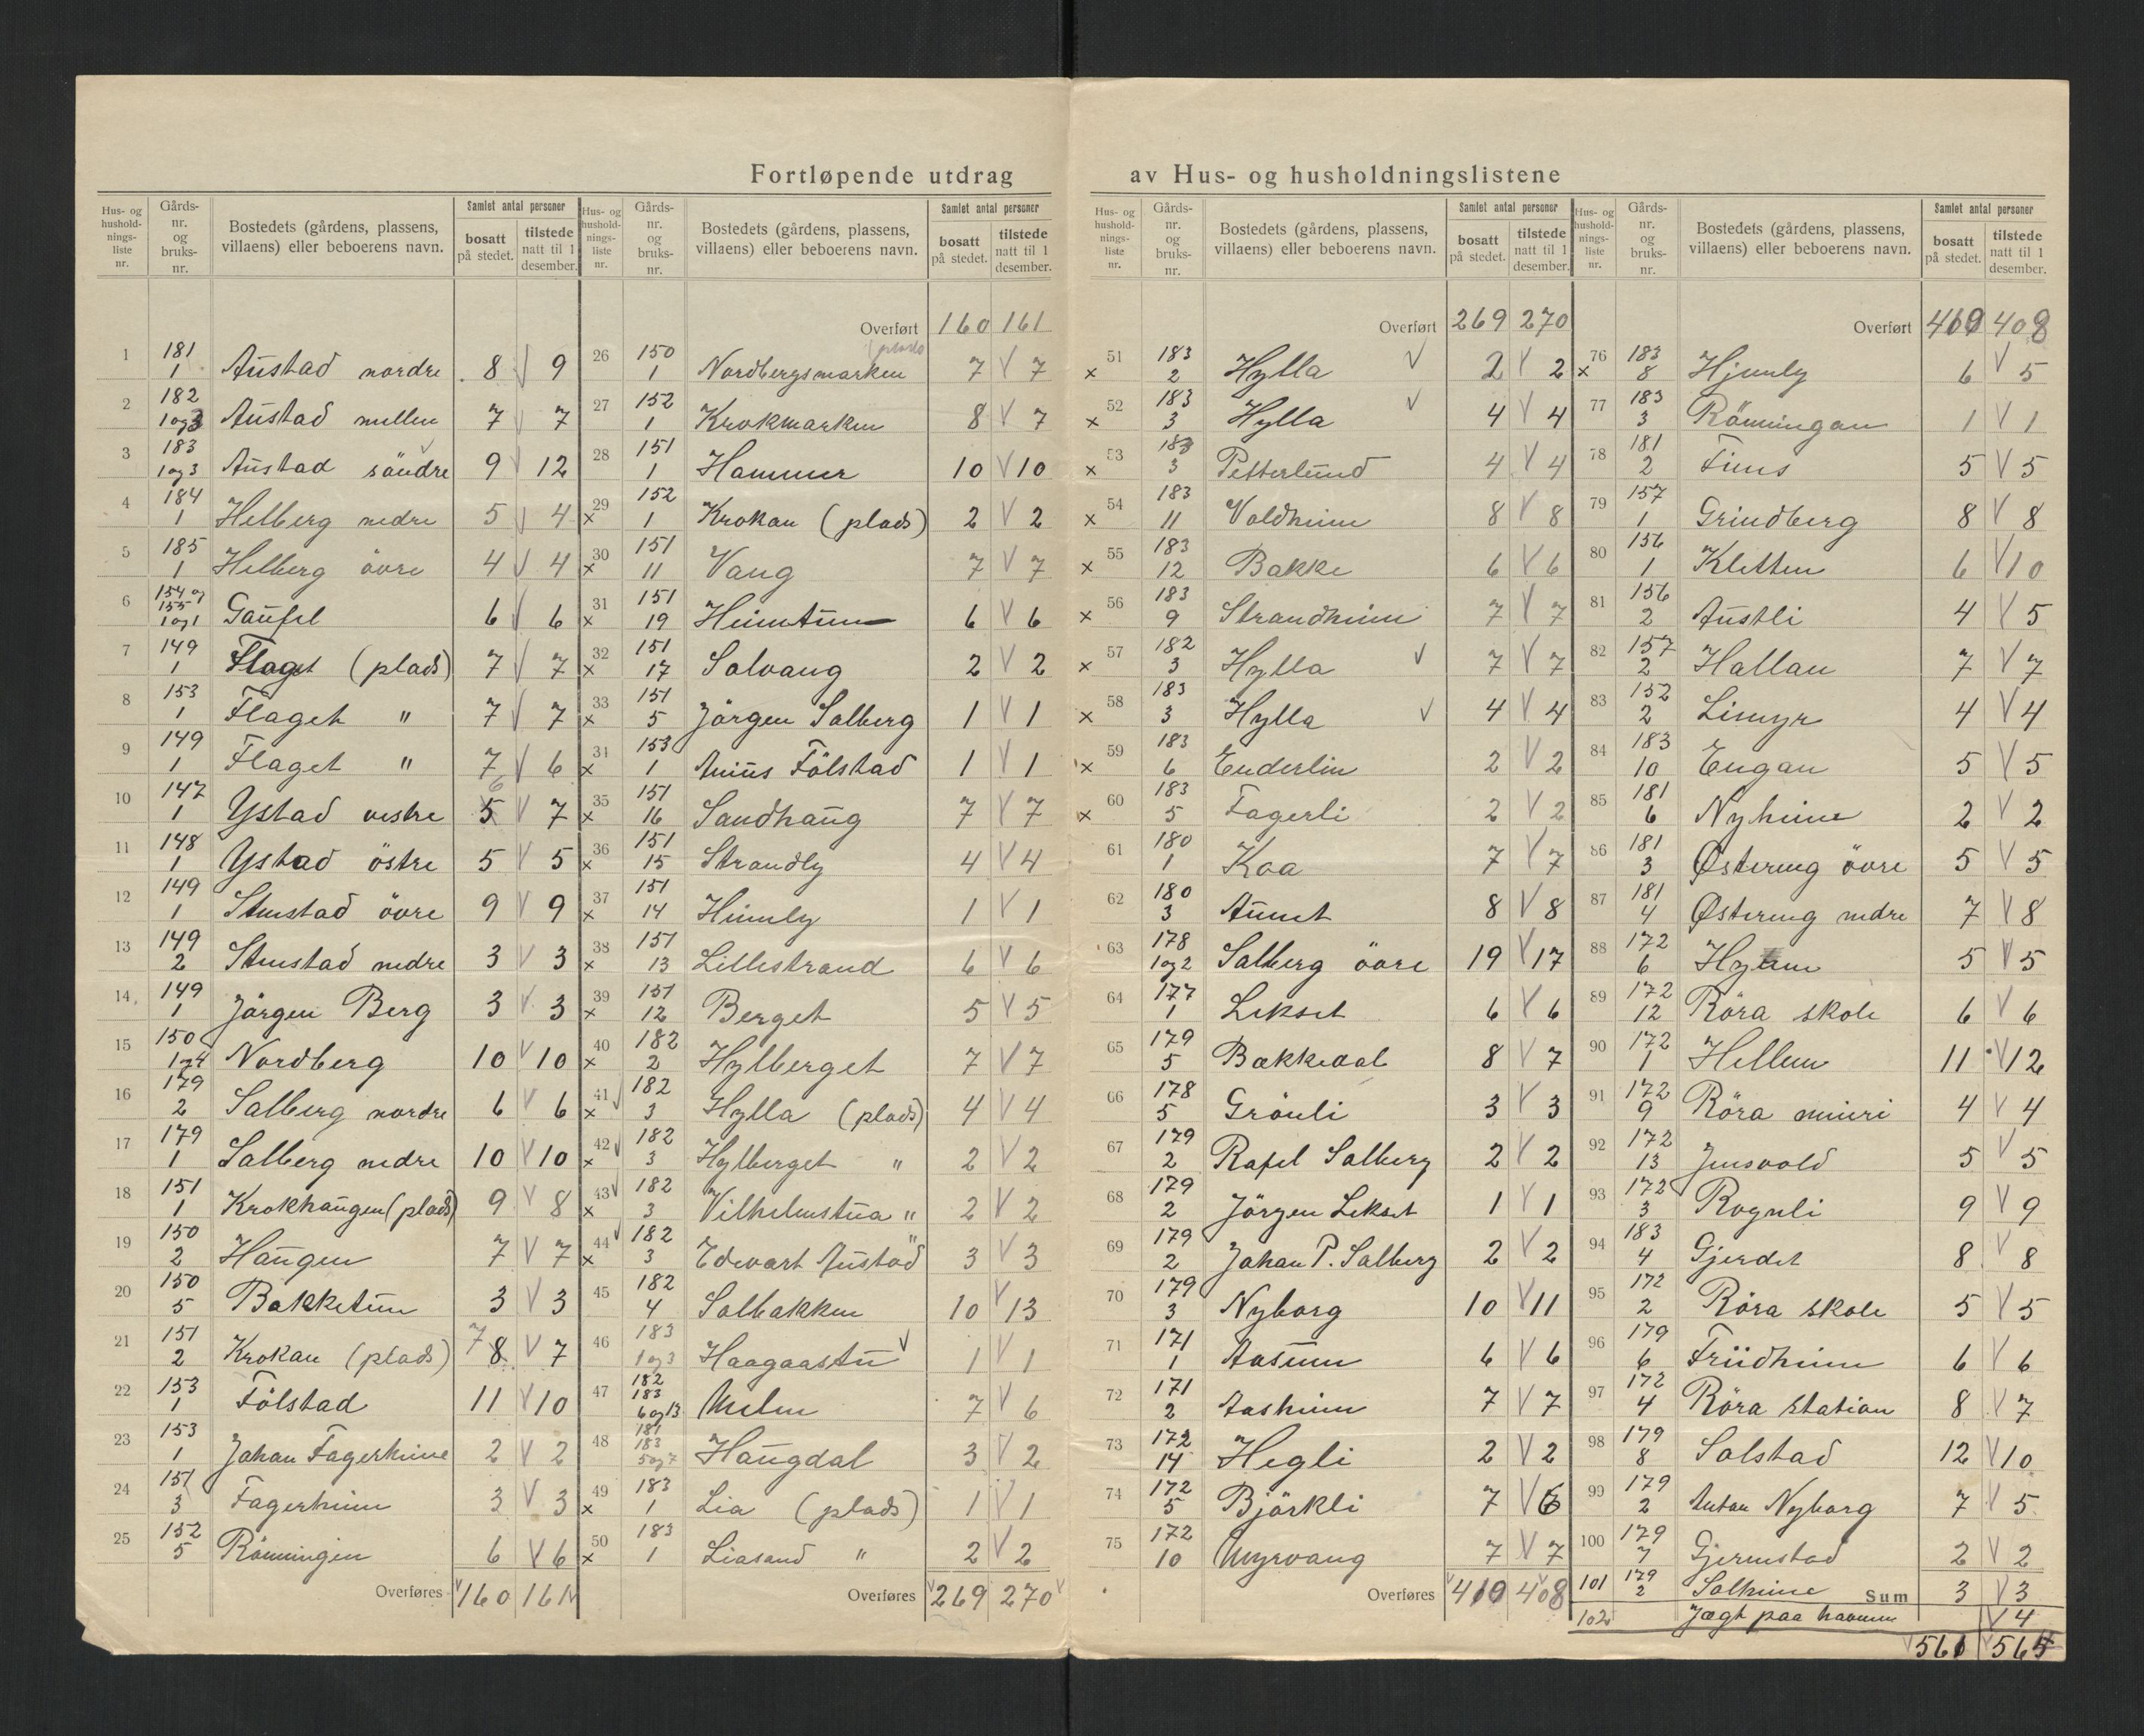 Fortløpende utdrag av Hus- og husholdningslistene
Hus- og hushold- nings- liste nr. | Gårds- nr. og bruks- nr. | Bostedets (gårdens, plassens, villaens) eller beboerens navn. | Samlet antal personer | bosatt på stedet. | tilstede natt til 1 desember.
1 181 1 Austad nordre 8 9
2 182 1og3 Austad mellem 7 7
3 183 1og3 Austad söndre 9 12
4 184 1 Helberg nedre 5 4
5 185 1 Helberg övre 4 4
6 154 og 155 1og1 Gaufel 6 6
7 149 1 Flaget (plads) 7 7
8 153 1 Flaget " 7 7
9 149 1 Flaget " 7 6
10 147 1 Ystad vestre 5 6 7
11 148 1 Ystad östre 5 5
12 149 1 Stenstad övre 9 9
13 149 2 Stenstad nedre 3 3
14 149 1 Jörgen Berg 3 3
15 150 1og4 Nordberg 10 10
16 179 2 Salberg nordre 6 6
17 179 1 Salberg nedre 10 10
18 151 1 Krokhaugen (plads) 9 8
19 150 2 Haugen 7 7
20 150 5 Bakketun 3 3
21 151 2 Krokan (plads) 7 8 7
22 153 1 Fölstad 11 10
23 153 1 Johan Fagerheim 2 2
24 151 3 Fagerheim 3 3
25 152 5 Rönningen 6 6
Overføres 160 161
Hus- og hushold- nings- liste nr. | Gårds- nr. og bruks- nr. | Bostedets (gårdens, plassens, villaens) eller beboerens navn. | Samlet antal personer | bosatt på stedet. | tilstede natt til 1 desember.
Overført 160 161
26 150 1 Nordbergsmarken (plads 7 7
27 152 1 Krokmarken 8 7
28 151 1 Hammer 10 10
29 x 152 1 Krokan (plads) 2 2
30 x 151 11 Vang 7 7
31 x 151 19 Heimtun 6 6
32 x 151 17 Solvang 2 2
33 x 151 5 Jörgen Salberg 1 1
31 x 153 1 Anius Fölstad 1 1
35 x 151 16 Sandhaug 7 7
36 x 151 15 Strandly 4 4
37 x 151 14 Heimly 1 1
38 x 151 13 Lillestrand 6 6
39 x 151 12 Berget 5 5
40 x 182 2 Hylberget 7 7
41 x 182 3 Hylla (plads) 4 4
42 x 182 3 Hylberget " 2 2
43 x 182 3 Vilhelmstua " 2 2
44 x 182 3 Edvart Austad " 3 3
45 182 4 Solbakken 10 13
46 183 1og3 Haagaastu 1 1
47 182 183 6og13 Melen 7 6
48 181 183 5og7 Haugdal 3 2
49 x 183 1 Lia (plads) 1 1
50 x 183 1 Liasand " 2 2
Overføres 269 270
Hus- og hushold- nings- liste nr. | Gårds- nr. og bruks- nr. | Bostedets (gårdens, plassens, villaens) eller beboerens navn. | Samlet antal personer | bosatt på stedet. | tilstede natt til 1 desember.
Overført 269 270
51 x 183 2 Hylla 2 2
52 x 183 3 Hylla 4 4
53 x 183 3 Petterlund 4 4
54 x 183 11 Voldheim 8 8
55 x 183 12 Bakke 6 6
56 x 183 9 Strandheim 7 7
57 x 182 3 Hylla 7 7
58 x 183 3 Hylla 4 4
59 x 183 6 Enderlin 2 2
60 x 183 5 Fagerli 2 2
61 180 1 Koa 7 7
62 180 3 Aunet 8 8
63 178 1og2 Salberg övre 19 17
64 177 1 Lekset 6 6
65 179 5 Bakkedal 8 7
66 178 5 Grönli 3 3
67 179 2 Rafel Salberg 2 2
68 179 2 Jörgen Lekset 1 1
69 179 2 Johan P. Salberg 2 2
70 179 3 Nyborg 10 11
71 171 1 Aasum 6 6
72 171 2 Aasheim 7 7
73 172 14 Hegli 2 2
74 172 5 Björkli 7 6
75 172 10 Myrvang 7 7
Overføres 410 408
Hus- og hushold- nings- liste nr. | Gårds- nr. og bruks- nr. | Bostedets (gårdens, plassens, villaens) eller beboerens navn. | Samlet antal personer | bosatt på stedet. | tilstede natt til 1 desember.
Overført 410 408
76 x 183 8 Hjemly 6 5
77 183 3 Rönningan 1 1
78 181 2 Fines 5 5
79 157 1 Grindberg 8 8
80 156 1 Kletten 6 10
81 156 2 Austli 4 5
82 157 2 Hallan 7 7
83 152 2 Limyr 4 4
84 183 10 Engan 5 5
85 181 6 Nyheim 2 2
86 181 3 Østereng övre 5 5
87 181 4 Østereng nedre 7 8
88 172 6 5 5
89 172 12 Röra skole 6 6
90 172 1 Hellem 11 12
91 172 9 Röra mieri 4 4
92 172 13 Jensvold 5 5
93 172 3 Rognli 9 9
94 183 4 Gjerdet 8 8
95 172 2 Röra skole 5 5
96 179 6 Friidheim 6 6
97 172 4 Röra station 8 7
98 179 8 Solstad 12 10
99 179 2 Anton Nyborg 7 5
100 179 7 Gjermstad 2 2
101 179 2 Solheim Sum 3 3
102 Jægt paa havnen 4
561 565